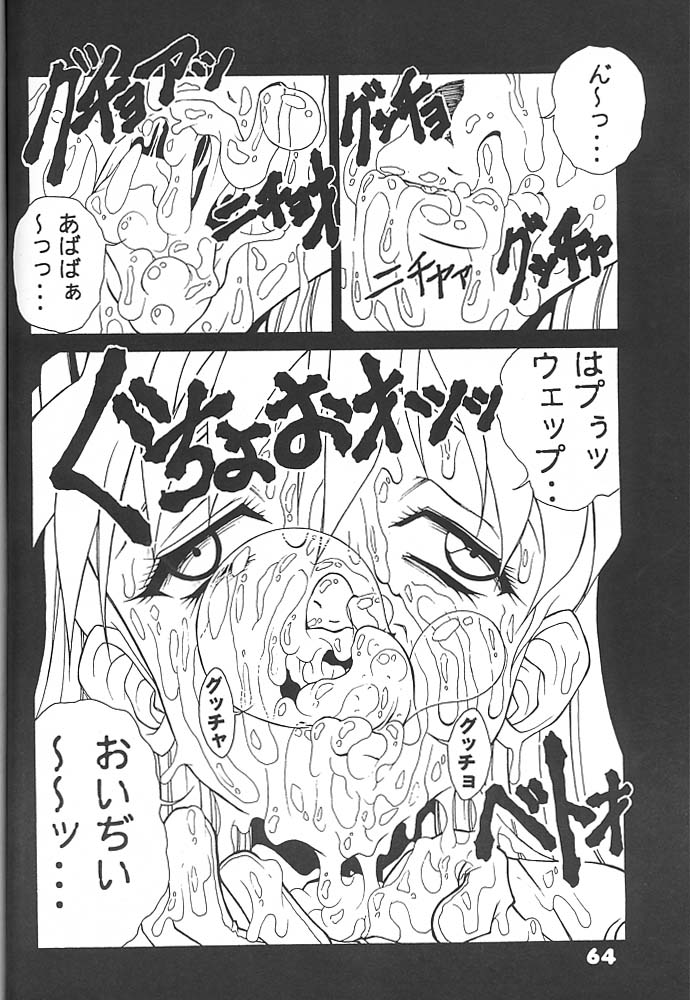 ん〜っ・・・
グッチョ
グッチャ
ニチャァ
グチョアッ
ニチョオ
あばばぁ
〜っっ・・・
はプゥッ
ウェップ・・
ぐちょおオッッ
グッチャ
グッチョ
ベトォ
おいぢい
〜〜ッ・・・
64